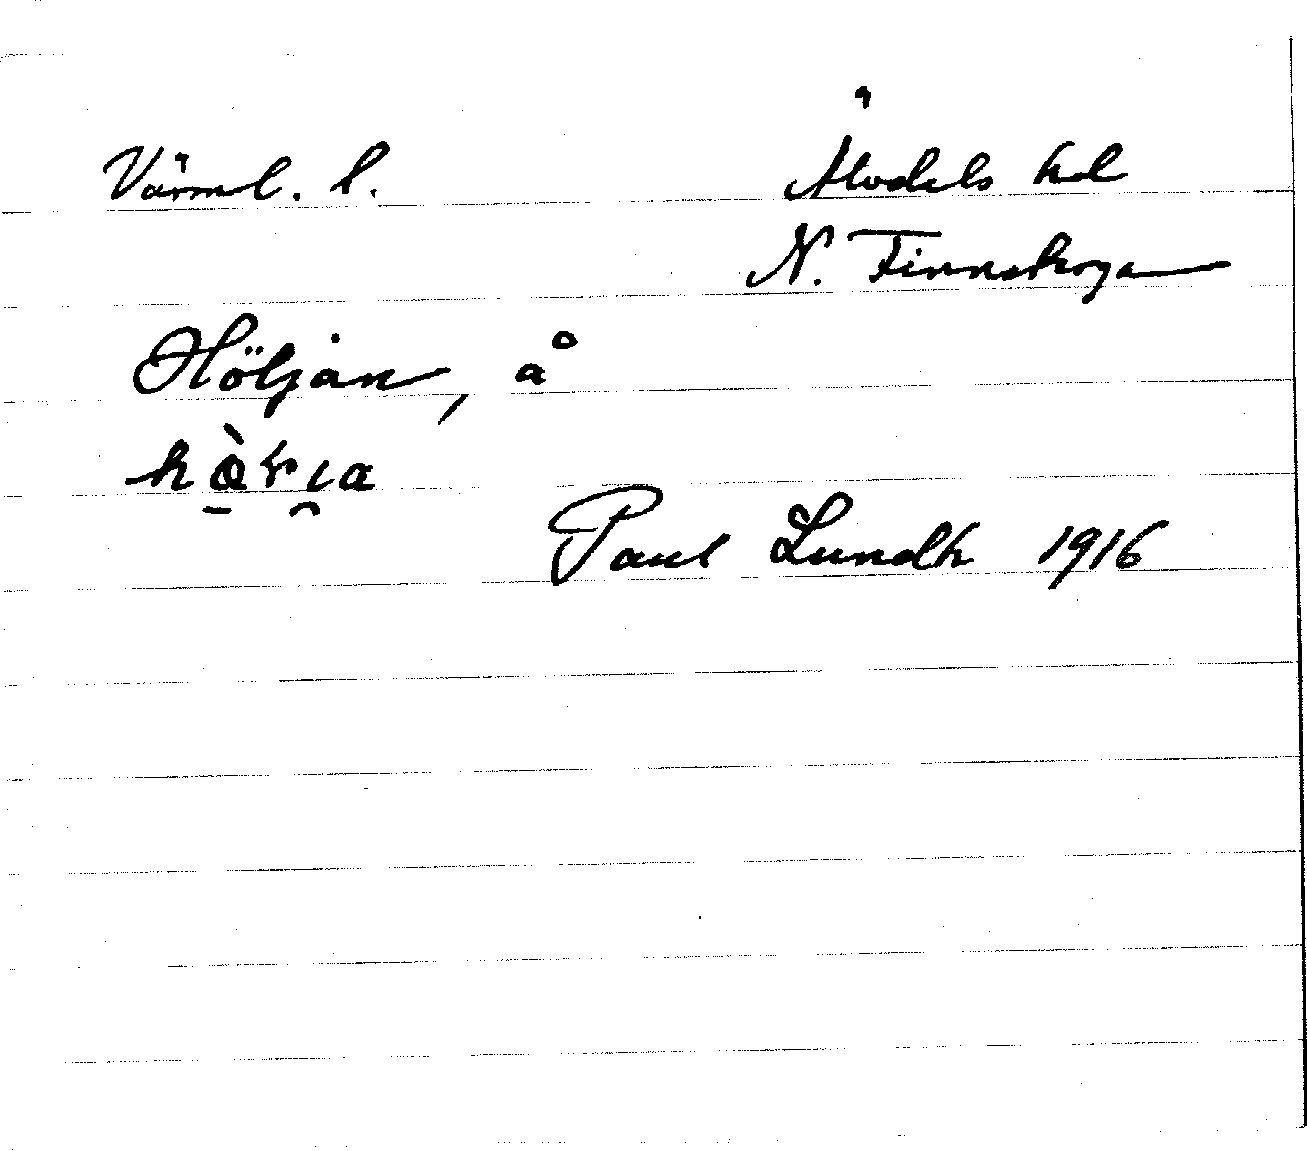 Värml. l. Älvdals hd
N. Finnskoga
Höljan, å
Paul Lundh 1916